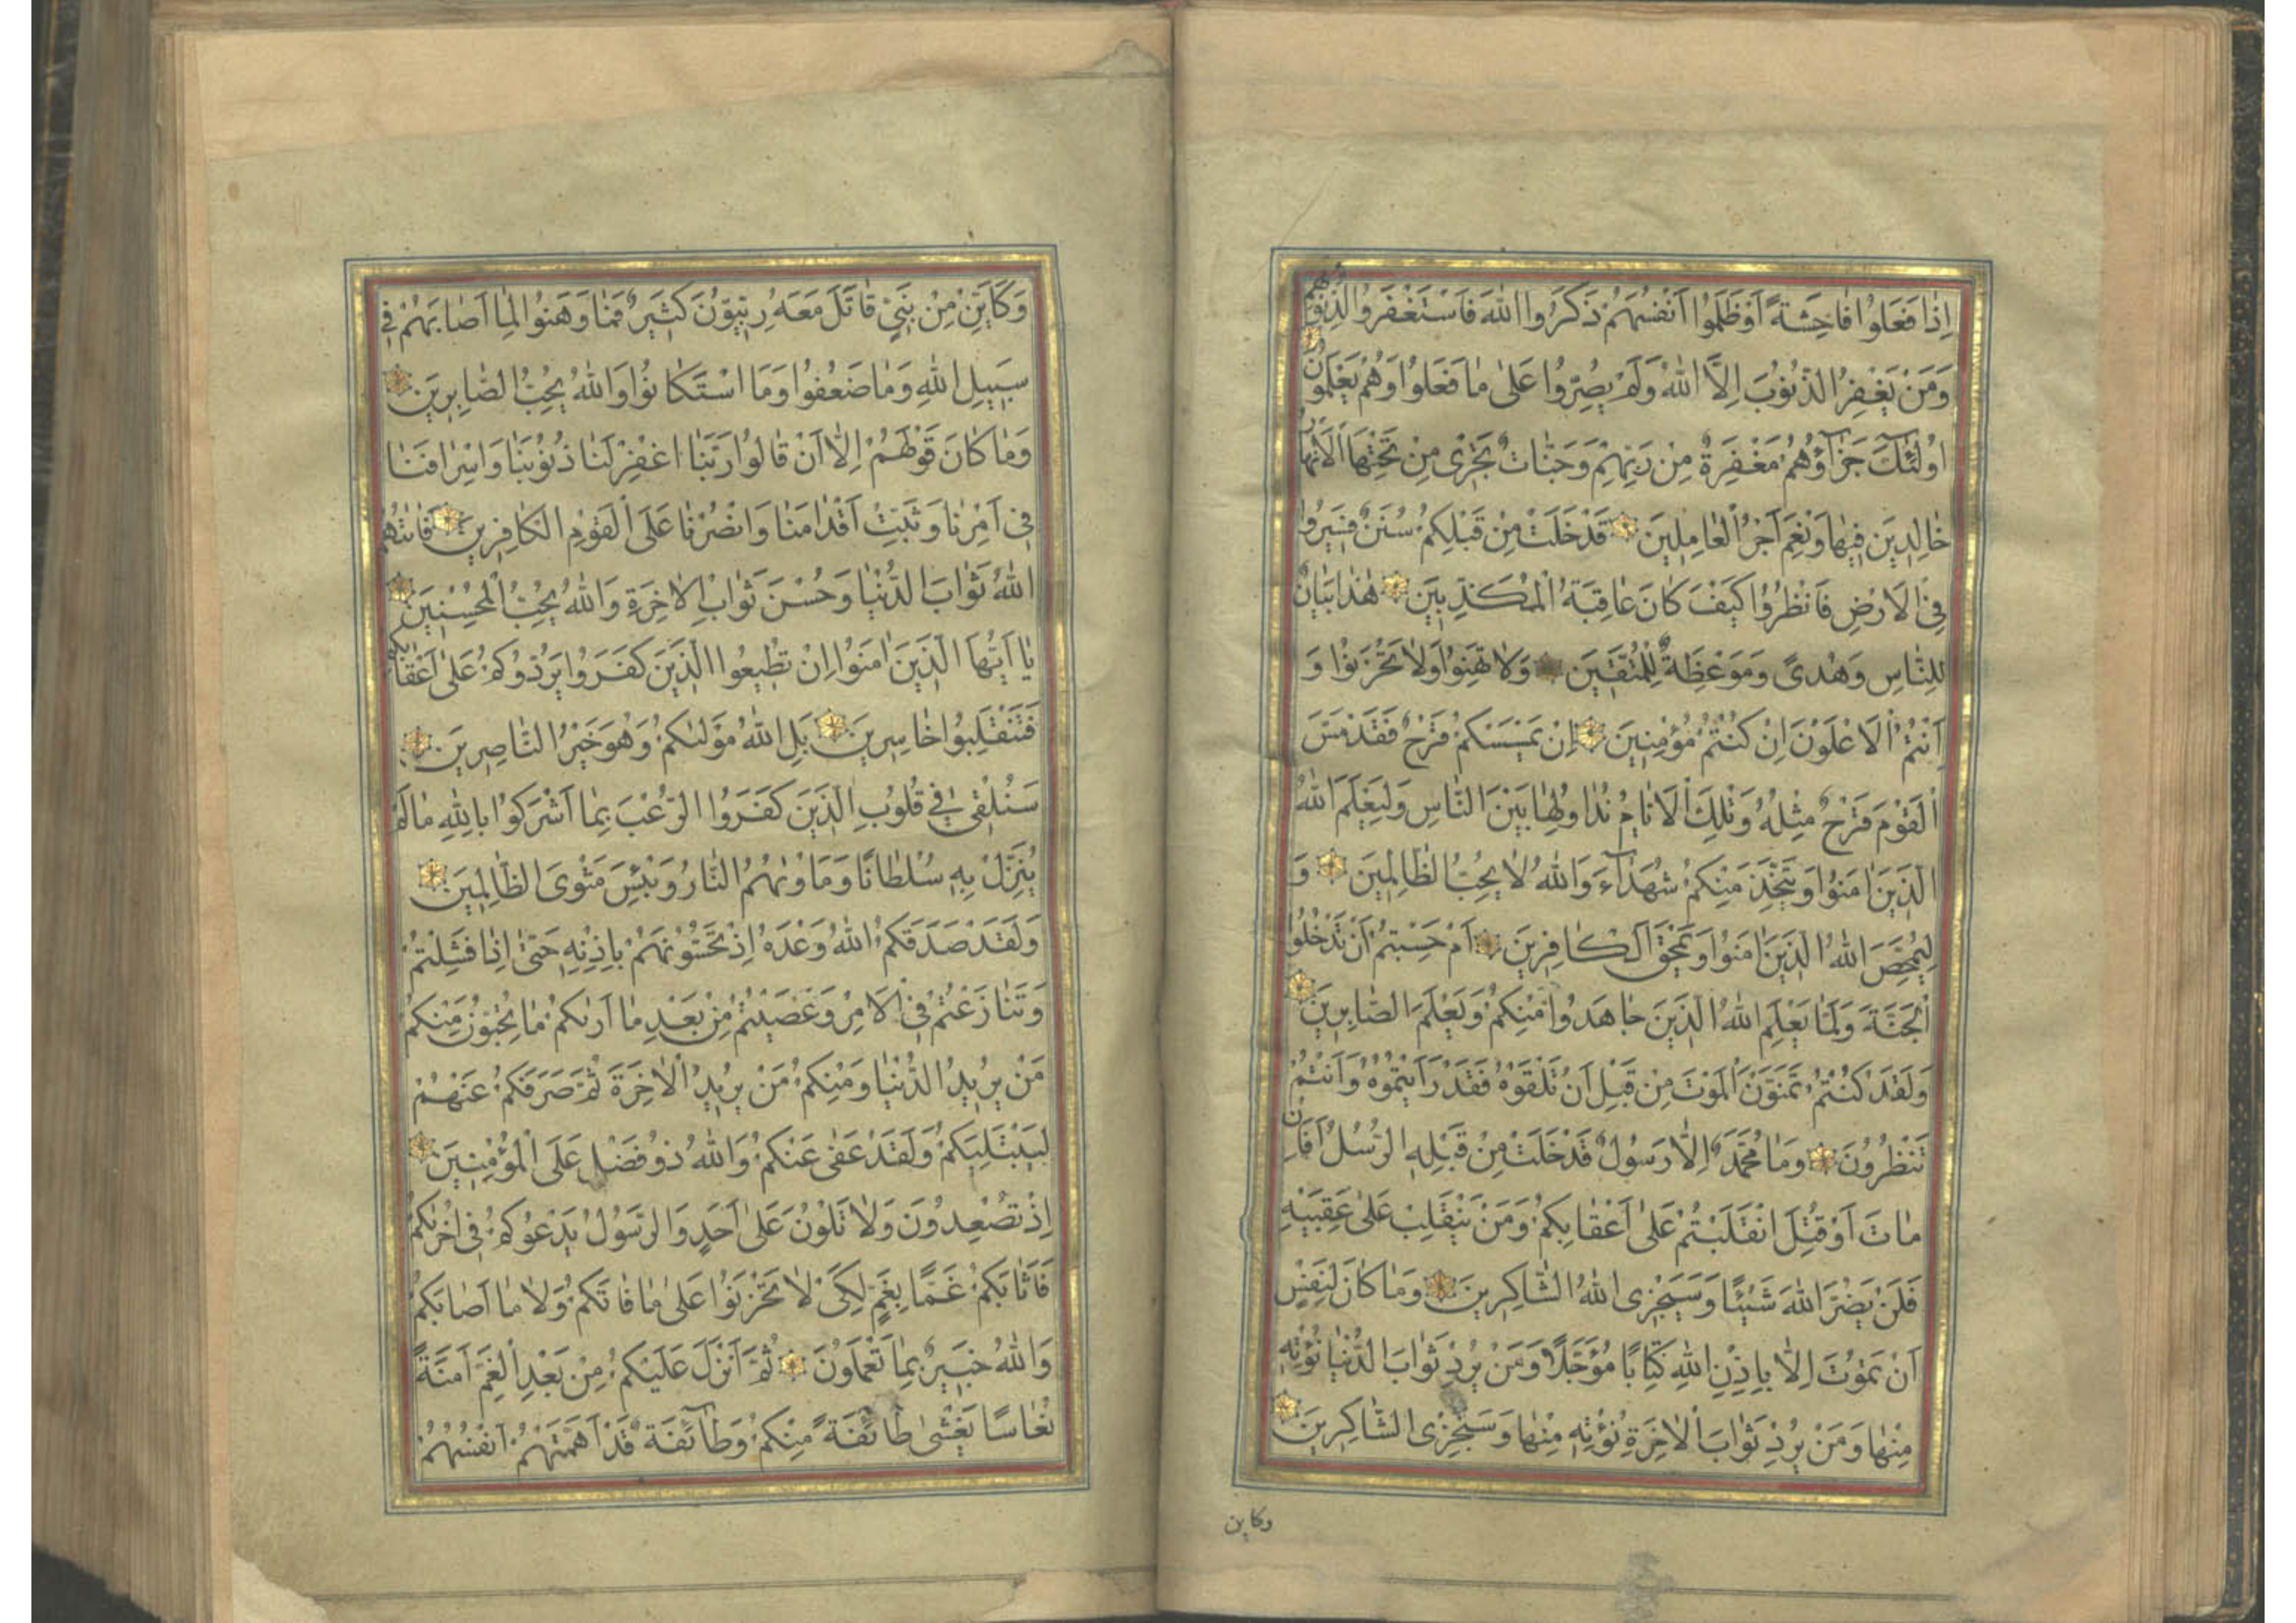 اِذٰا فَعَلُوا فٰاحِشَةً اَوْ ظَلَمُوا اَنْفُسَهُمْ ذَكَرُوا اللّٰهَ فَاسْتَغْفَرُوا لِذُنُوبِهِمْ
وَمَنْ يَغْفِرُ الذُّنُوبَ اِلَّا اللّٰهُ وَلَمْ يُصِرُّوا عَلىٰ مٰا فَعَلُوا وَهُمْ يَعْلَمُونَ
اُولٰئِكَ جَزٰآؤُهُمْ مَغْفِرَةٌ مِنْ رَبِّهِمْ وَجَنّٰاتٌ تَجْرِى مِنْ تَحْتِهَا الْاَنْهٰارُ
خٰالِدِينَ فِيهٰا وَنِعْمَ اَجْرُ الْعٰامِلِينَ قَدْ خَلَتْ مِنْ قَبْلِكُمْ سُنَنٌ فَسِيرُوا
فِى الْاَرْضِ فَانْظُرُوا كَيْفَ كٰانَ عٰاقِبَةُ الْمُكَذِّبِينَ هٰذٰا بَيٰانٌ
لِلنّٰاسِ وَهُدىً وَمَوْعِظَةٌ لِلْمُتَّقِينَ وَلٰا تَهِنُوا وَلٰا تَحْزَنُوا وَ
اَنْتُمُ الْاَعْلَوْنَ اِنْ كُنْتُمْ مُؤْمِنِينَ اِنْ يَمْسَسْكُمْ قَرْحٌ فَقَدْ مَسَّ
الْقَوْمَ قَرْحٌ مِثْلُهُ وَتِلْكَ الْاَيّٰامُ نُدٰاوِلُهٰا بَيْنَ النّٰاسِ وَلِيَعْلَمَ اللّٰهُ
الَّذِينَ اٰمَنُوا وَيَتَّخِذَ مِنْكُمْ شُهَدٰآءَ وَاللّٰهُ لٰا يُحِبُّ الظّٰالِمِينَ وَ
لِيُمَحِّصَ اللّٰهُ الَّذِينَ اٰمَنُوا وَيَمْحَقَ الْكٰافِرِينَ اَمْ حَسِبْتُمْ اَنْ تَدْخُلُوا
الْجَنَّةَ وَلَمّٰا يَعْلَمِ اللّٰهُ الَّذِينَ جٰاهَدُوا مِنْكُمْ وَيَعْلَمَ الصّٰابِرِينَ
وَلَقَدْ كُنْتُمْ تَمَنَّوْنَ الْمَوْتَ مِنْ قَبْلِ اَنْ تَلْقَوْهُ فَقَدْ رَاَيْتُمُوهُ وَاَنْتُمْ
تَنْظُرُونَ وَمٰا مُحَمَّدٌ اِلّٰا رَسُولٌ قَدْ خَلَتْ مِنْ قَبْلِهِ الرُّسُلُ اَفَاِنْ
مٰاتَ اَوْ قُتِلَ انْقَلَبْتُمْ عَلىٰ اَعْقٰابِكُمْ وَمَنْ يَنْقَلِبْ عَلىٰ عَقِبَيْهِ
فَلَنْ يَضُرَّ اللّٰهَ شَيْئًا وَسَيَجْزِى اللّٰهُ الشّٰاكِرِينَ وَمٰا كٰانَ لِنَفْسٍ
اَنْ تَمُوتَ اِلّٰا بِاِذْنِ اللّٰهِ كِتٰابًا مُؤَجَّلًا وَمَنْ يُرِدْ ثَوٰابَ الدُّنْيٰا نُؤْتِهِ
مِنْهٰا وَمَنْ يُرِدْ ثَوٰابَ الْاٰخِرَةِ نُؤْتِهِ مِنْهٰا وَسَنَجْزِى الشّٰاكِرِينَ
وكاين
وَكَاَيِّنْ مِنْ نَبِيٍّ قٰاتَلَ مَعَهُ رِبِّيُّونَ كَثِيرٌ فَمٰا وَهَنُوا لِمٰا اَصٰابَهُمْ فِى
سَبِيلِ اللّٰهِ وَمٰا ضَعُفُوا وَمَا اسْتَكٰانُوا وَاللّٰهُ يُحِبُّ الصّٰابِرِينَ
وَمٰا كٰانَ قَوْلَهُمْ اِلّٰا اَنْ قٰالُوا رَبَّنَا اغْفِرْ لَنٰا ذُنُوبَنٰا وَاِسْرٰافَنٰا
فِى اَمْرِنٰا وَثَبِّتْ اَقْدٰامَنٰا وَانْصُرْنٰا عَلَى الْقَوْمِ الْكٰافِرِينَ فَاٰتٰهُمُ
اللّٰهُ ثَوٰابَ الدُّنْيٰا وَحُسْنَ ثَوٰابِ الْاٰخِرَةِ وَاللّٰهُ يُحِبُّ الْمُحْسِنِينَ
يٰا اَيُّهَا الَّذِينَ اٰمَنُوا اِنْ تُطِيعُوا الَّذِينَ كَفَرُوا يَرُدُّوكُمْ عَلىٰ اَعْقٰابِكُمْ
فَتَنْقَلِبُوا خٰاسِرِينَ بَلِ اللّٰهُ مَوْلٰىكُمْ وَهُوَ خَيْرُ النّٰاصِرِينَ
سَنُلْقِى فِى قُلُوبِ الَّذِينَ كَفَرُوا الرُّعْبَ بِمٰا اَشْرَكُوا بِاللّٰهِ مٰا لَمْ
يُنَزِّلْ بِهِ سُلْطٰانًا وَمَاْوٰىهُمُ النّٰارُ وَبِئْسَ مَثْوَى الظّٰالِمِينَ
وَلَقَدْ صَدَقَكُمُ اللّٰهُ وَعْدَهُ اِذْ تَحُسُّونَهُمْ بِاِذْنِهِ حَتّٰى اِذٰا فَشِلْتُمْ
وَتَنٰازَعْتُمْ فِى الْاَمْرِ وَعَصَيْتُمْ مِنْ بَعْدِ مٰا اَرٰىكُمْ مٰا تُحِبُّونَ مِنْكُمْ
مَنْ يُرِيدُ الدُّنْيٰا وَمِنْكُمْ مَنْ يُرِيدُ الْاٰخِرَةَ ثُمَّ صَرَفَكُمْ عَنْهُمْ
لِيَبْتَلِيَكُمْ وَلَقَدْ عَفٰى عَنْكُمْ وَاللّٰهُ ذُو فَضْلٍ عَلَى الْمُؤْمِنِينَ
اِذْ تُصْعِدُونَ وَلٰا تَلْوُنَ عَلىٰ اَحَدٍ وَالرَّسُولُ يَدْعُوكُمْ فِى اُخْرٰىكُمْ
فَاَثٰابَكُمْ غَمًّا بِغَمٍّ لِكَىْ لٰا تَحْزَنُوا عَلىٰ مٰا فٰاتَكُمْ وَلٰا مٰا اَصٰابَكُمْ
وَاللّٰهُ خَبِيرٌ بِمٰا تَعْمَلُونَ ثُمَّ اَنْزَلَ عَلَيْكُمْ مِنْ بَعْدِ الْغَمِّ اَمَنَةً
نُعٰاسًا يَغْشىٰ طٰآئِفَةً مِنْكُمْ وَطٰآئِفَةٌ قَدْ اَهَمَّتْهُمْ اَنْفُسُهُمْ